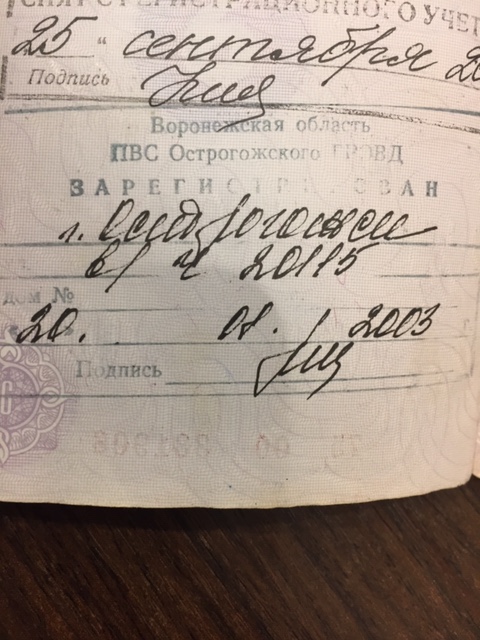 СНЯТ С РЕГИСТРАЦИОННОГО УЧЕТ
25 " сентября 20
Подпись
Воронежская область
ПВС Острогожского ГРОВД
ЗАРЕГИСТРИРОВАН
г. Острогожск
в/ч 20115
дом №
20. 08. 2003
Подпись